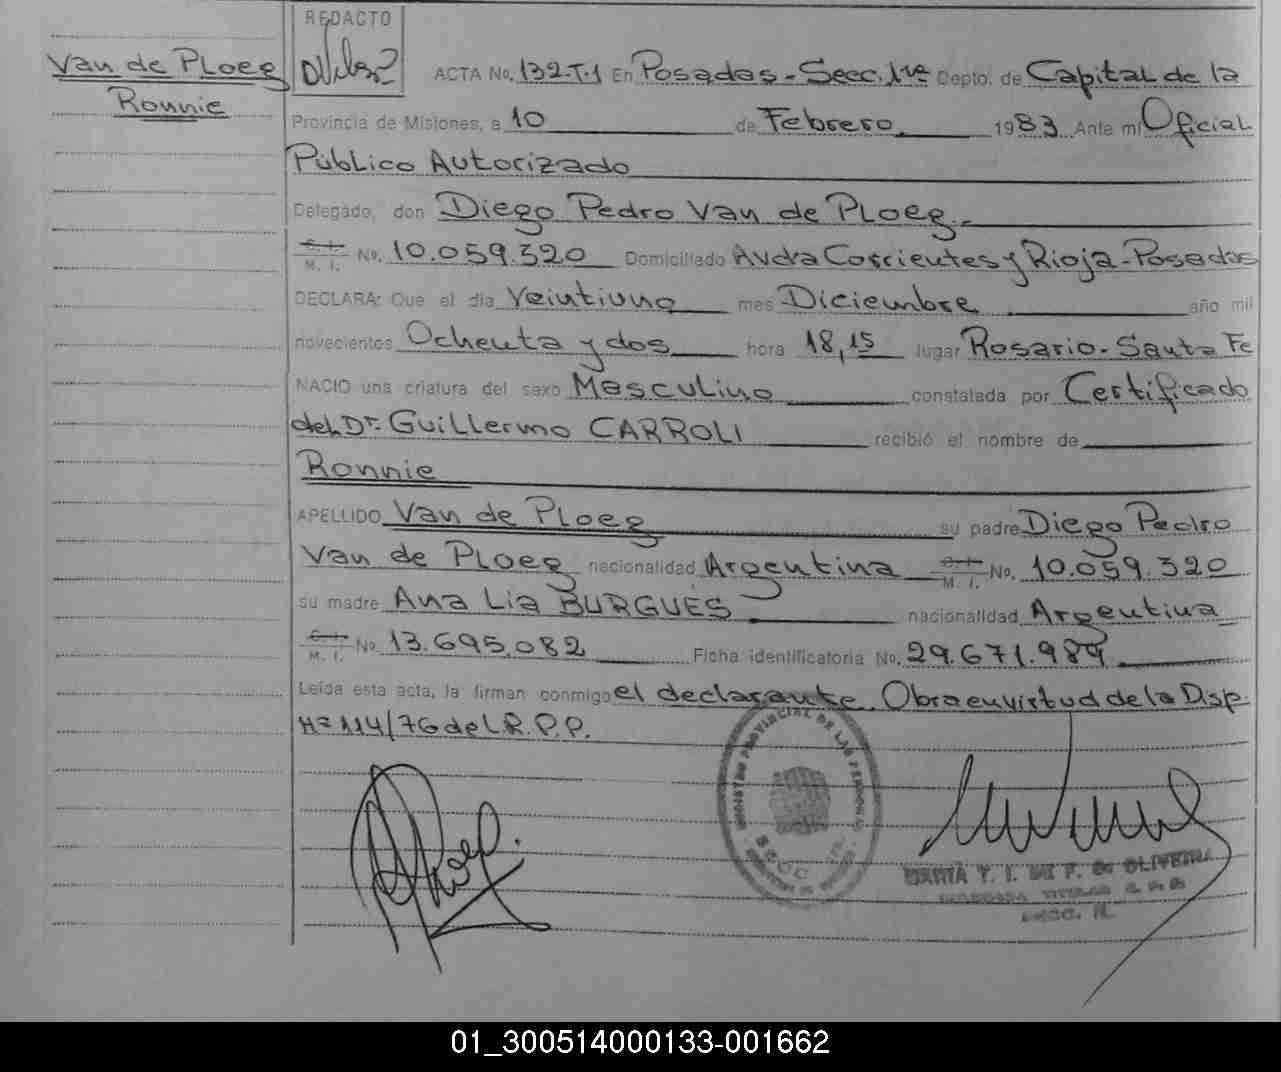 REDACTO
Van de Ploeg
Ronnie
ACTA No. 132-T-1 En Posadas - Secc. 1ra Depto. de Capital de la
Provincia de Misiones, a 10 de Febrero 1983 Ante mi Oficial
Público Autorizado
Delegado, don Diego Pedro Van de Ploeg.
C. I. M. I. No. 10.059.320 Domiciliado Avdra Corrientes y Rioja - Posadas
DECLARA: Que el día Veintiuno mes Diciembre año mil
novecientos Ochenta y dos hora 18,15 lugar Rosario - Santa Fe
NACIO una criatura del sexo Masculino constatada por Certificado
del Dr. Guillermo CARROLI recibió el nombre de
Ronnie
APELLIDO Van de Ploeg su padre Diego Pedro
Van de Ploeg nacionalidad Argentina C. I. M. I. No. 10.059.320
su madre Ana Lia BURGUES nacionalidad Argentina
C. I. M. I. No. 13.695.082 Ficha identificatoria No. 29.671.989
Leída esta acta, la firman conmigo el declarante. Obra en virtud de la Disp.
Nº 114/76 del R.P.P.
REGISTRO PROVINCIAL DE LAS PERSONAS
SECC.
DE OLIVEIRA
01_300514000133-001662